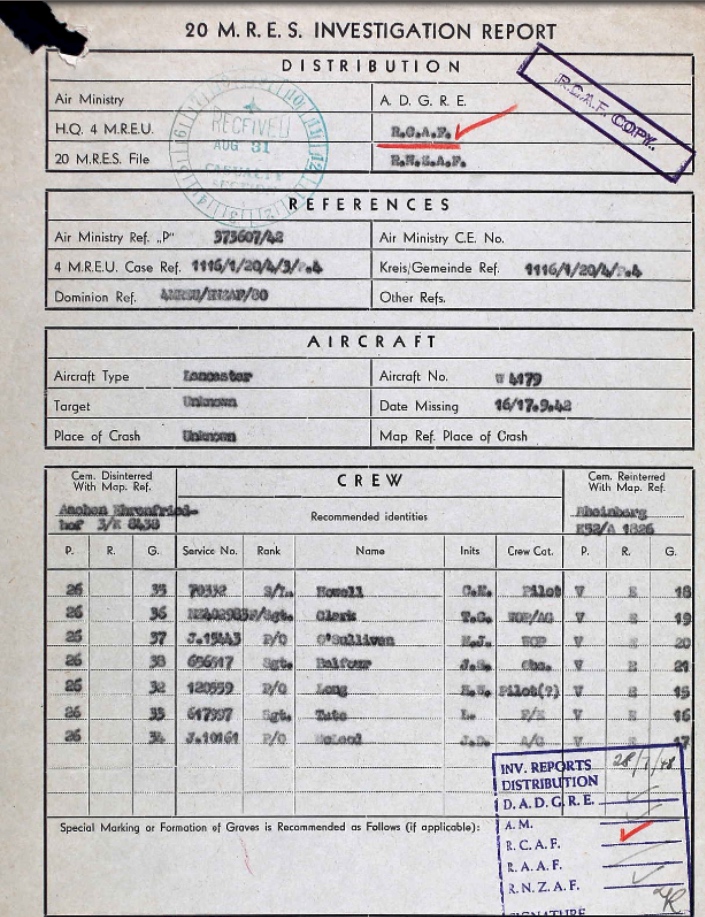 20 M. R. E. S. INVESTIGATION REPORT
DISTRIBUTION
Air Ministry A. D. G. R. E.
H.Q. 4 M.R.E.U. R.C.A.F.
20 M.R.E.S. File R.N.Z.A.F.
RECEIVED
AUG 31
CASUALTY
R.C.A.F. COPY.
REFERENCES
Air Ministry Ref. „P" 373607/42 Air Ministry C.E. No.
4 M.R.E.U. Case Ref. 1116/1/20/4/3/ Kreis/Gemeinde Ref. 1116/1/20/4/
Dominion Ref. Other Refs.
AIRCRAFT
Aircraft Type Lancaster Aircraft No. W 4179
Target Unknown Date Missing 16/17.9.42
Place of Crash Unknown Map Ref. Place of Crash
Cem. Disinterred With Map. Ref. CREW Cem. Reinterred With Map. Ref.
Aachen Ehrenfried- Recommended identities Rheinberg
hof 3/K 8438 K52/A 1826
P. R. G. Service No. Rank Name Inits Crew Cat. P. R. G.
26 35 70332 S/L. Howell Pilot V E 18
26 36 F/Sgt. Clark T.C. WOP/AG V E 19
26 37 P/O O'Sullivan WOP V E 20
26 38 Sgt. Balfour Obs. V E 21
26 32 120559 P/O Long Pilot(?) V E 15
26 33 Sgt. Tate L. F/E V E 16
26 34 J.10161 P/O McLeod J.D. A/G V E 17
Special Marking or Formation of Graves is Recommended as Follows (if applicable):
INV. REPORTS
DISTRIBUTION
D. A. D. G. R. E.
A. M.
R. C. A. F.
R. A. A. F.
R. N. Z. A. F.
SIGNATURE